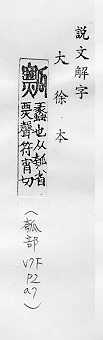 說文解字
大徐本
瓢
蠡也从瓠省
票聲符宵切
(瓠部
V7下
P2
a7)